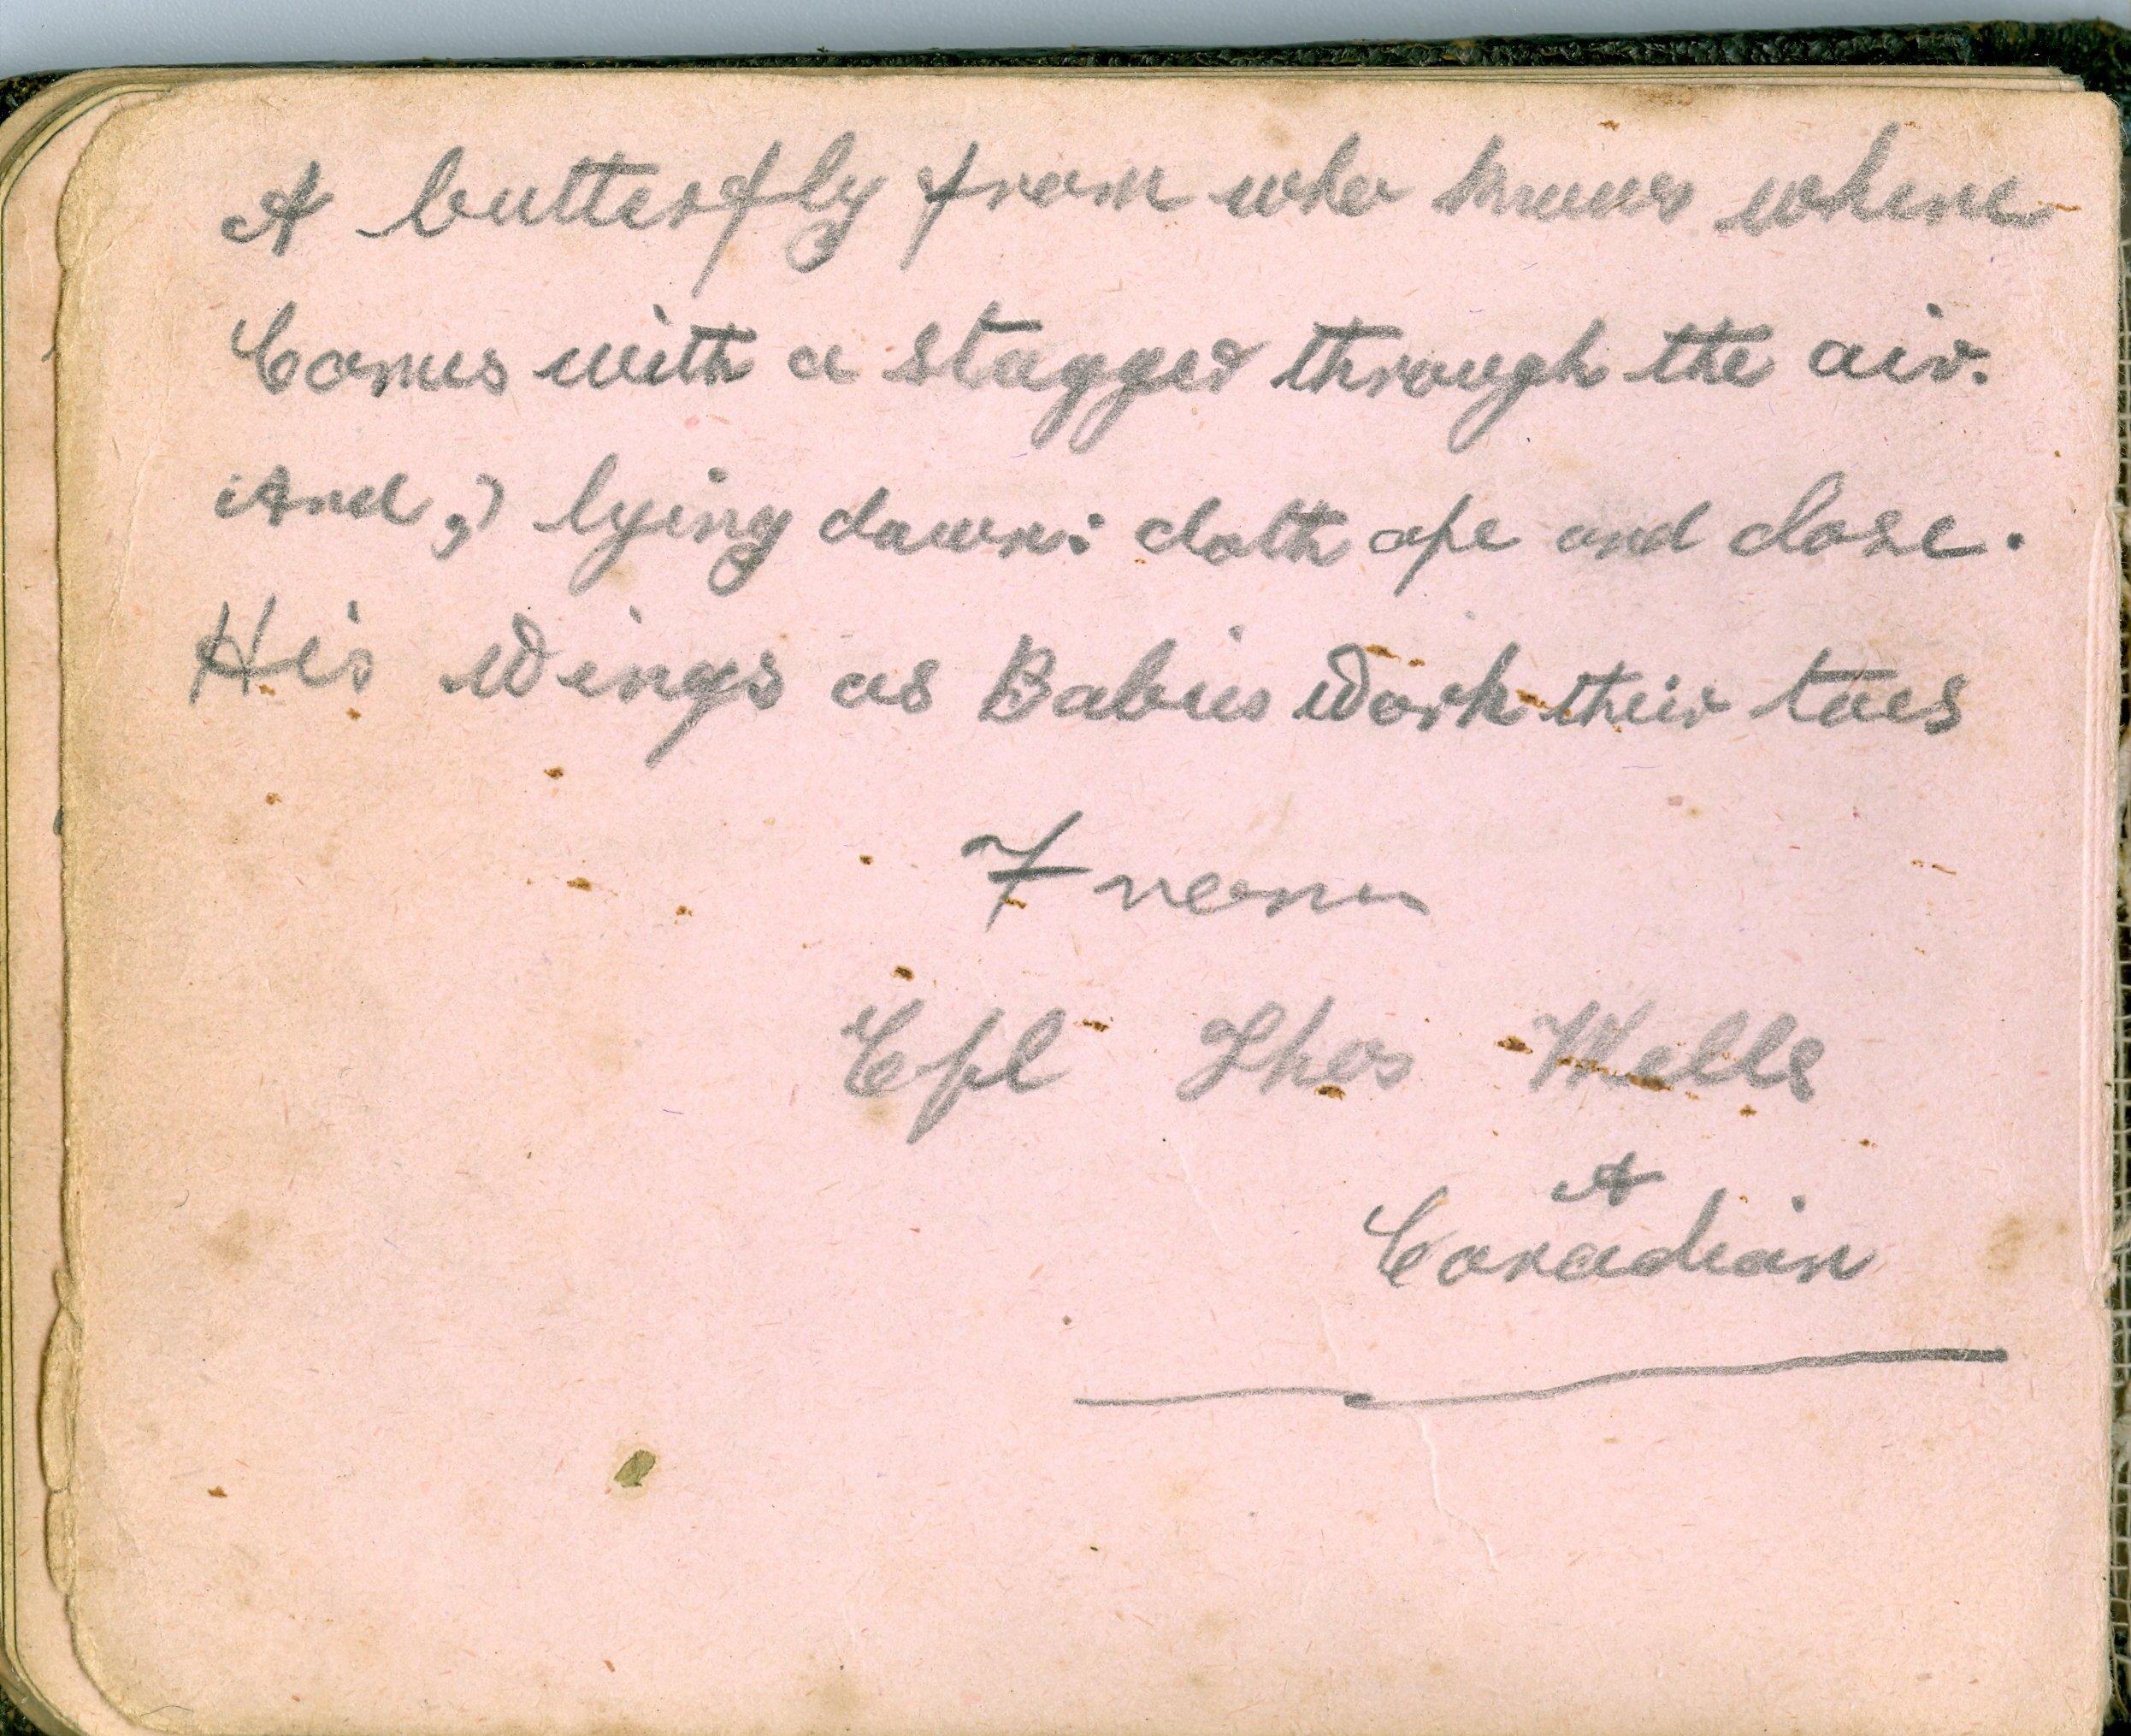 A butterfly from who knows where
Comes with a stagger through the air.
And, lying down: doth ope and close.
His Wings as Babies Work their toes
From
Cpl Thos Wells
A
Canadian